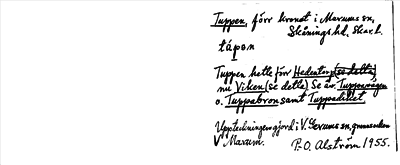 Tuppen, förr kronot i Marums sn,
Skånings hd, Skar. l.
tápon
Tuppen hette för Hedentorp (se detta)
nu Viken (se dette) Se äv. Tuppavägen
o. Tuppabron samt Tuppadiket
Uppteckningen gjord i V. Gerums sn, grannsocken
V Marum. P.O. Alström 1955.